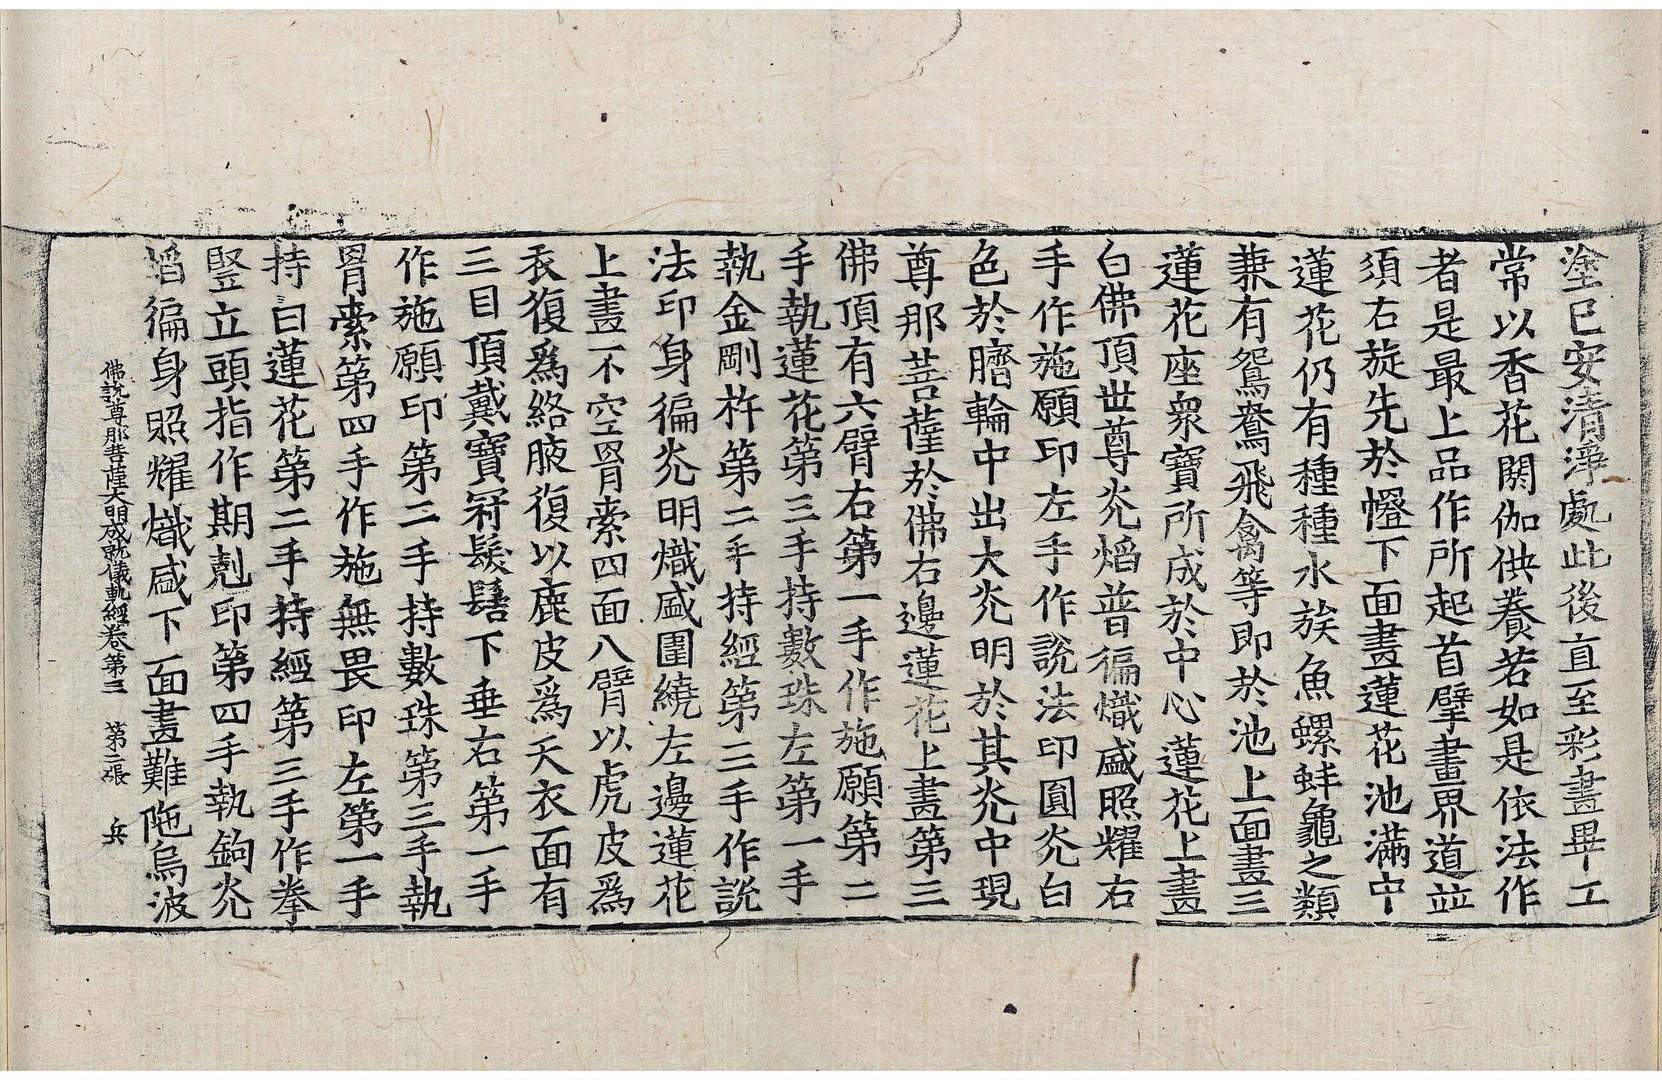 塗已安清淨處此後直至彩畫畢工
常以香花閼伽供養若如是依法作
者是最上品作所起首擘畫界道並
須右旋先於㡧下面畫蓮花池滿中
蓮花仍有種種水族魚螺蚌龜之類
兼有鴛鴦飛禽等即於池上面畫三
蓮花座衆寶所成於中心蓮花上畫
白佛頂世尊光焰普徧熾盛照耀右
手作施願印左手作說法印圓光白
色於臍輪中出大光明於其光中現
尊那菩薩於佛右邊蓮花上畫第三
佛頂有六臂右第一手作施願第二
手執蓮花第三手持數珠左第一手
執金剛杵第二手持經第三手作說
法印身徧光明熾盛圍繞左邊蓮花
上畫不空罥索四面八臂以虎皮爲
衣復爲絡腋復以鹿皮爲天衣面有
三目頂戴寶冠髮髻下垂右第一手
作施願印第二手持數珠第三手執
罥索第四手作施無畏印左第一手
持白蓮花第二手持經第三手作拳
豎立頭指作期剋印第四手執鉤光
焰徧身照耀熾盛下面畫難陁烏波
佛說尊那菩薩大明成就儀軌經卷第三　第二張　兵